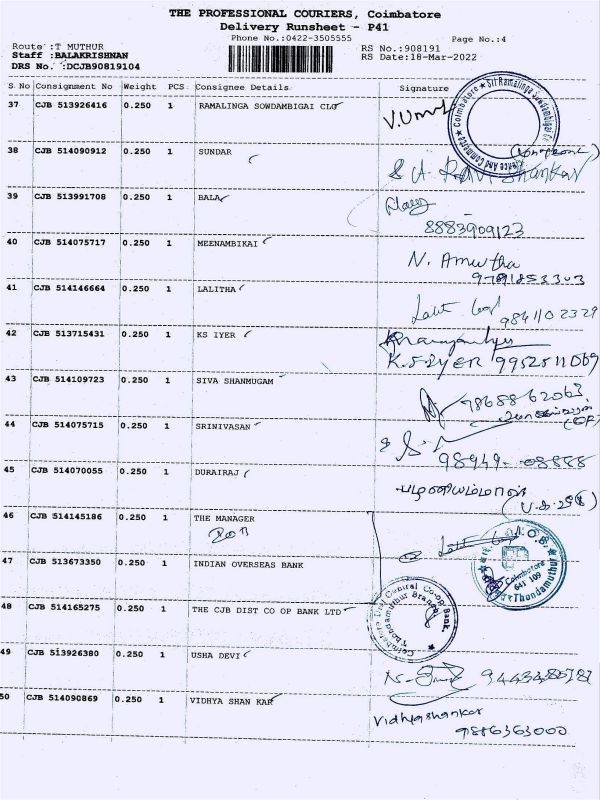 THE PROFESSIONAL COURIERS, Coimbatore
Delivery Runsheet - P41
Phone No.:0422-3505555
Page No.:4
Route :T MUTHUR
RS No.:908191
Staff :BALAKRISHNAN
RS Date:18-Mar-2022
DRS No. :DCJB90819104
S No Consignment No Weight PCS Consignee Details Signature
37 CJB 513926416 0.250 1 RAMALINGA SOWDAMBIGAI CLG
38 CJB 514090912 0.250 1 SUNDAR
39 CJB 513991708 0.250 1 BALA
8883909123
40 CJB 514075717 0.250 1 MEENAMBIKAI N. Amutha
41 CJB 514146664 0.250 1 LALITHA
9841102329
42 CJB 513715431 0.250 1 KS IYER
K.S.IYER 9952511069
43 CJB 514109723 0.250 1 SIVA SHANMUGAM
9868862063
44 CJB 514075715 0.250 1 SRINIVASAN
45 CJB 514070055 0.250 1 DURAIRAJ
பழனியம்மாள்
46 CJB 514145186 0.250 1 THE MANAGER
47 CJB 513673350 0.250 1 INDIAN OVERSEAS BANK
Coimbatore
641 109
Thondamuthur
48 CJB 514165275 0.250 1 THE CJB DIST CO OP BANK LTD
Coimbatore Dist Central Co-op Bank,
Thondamuthur Branch
49 CJB 513926380 0.250 1 USHA DEVI
50 CJB 514090869 0.250 1 VIDHYA SHAN KAR
Vidhyashankar
9886363000